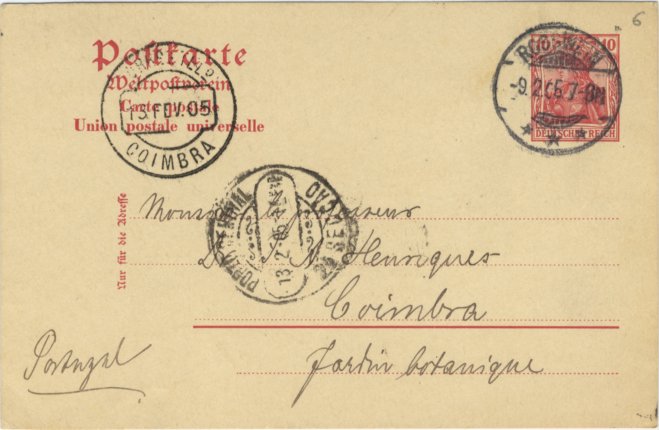 6
Postkarte
Weltpostverein
Carte postale
Union postale universelle
13.FEV.05
COIMBRA
10 10
-9.2.05.7-8N
DEUTSCHES REICH
PORTO CENTRAL
13-2-05
2ª SECÇÃO
Nur für die Adresse
Monsieur le Professeur
Dr. Henriques
Coimbra
Portugal
Jardin botanique